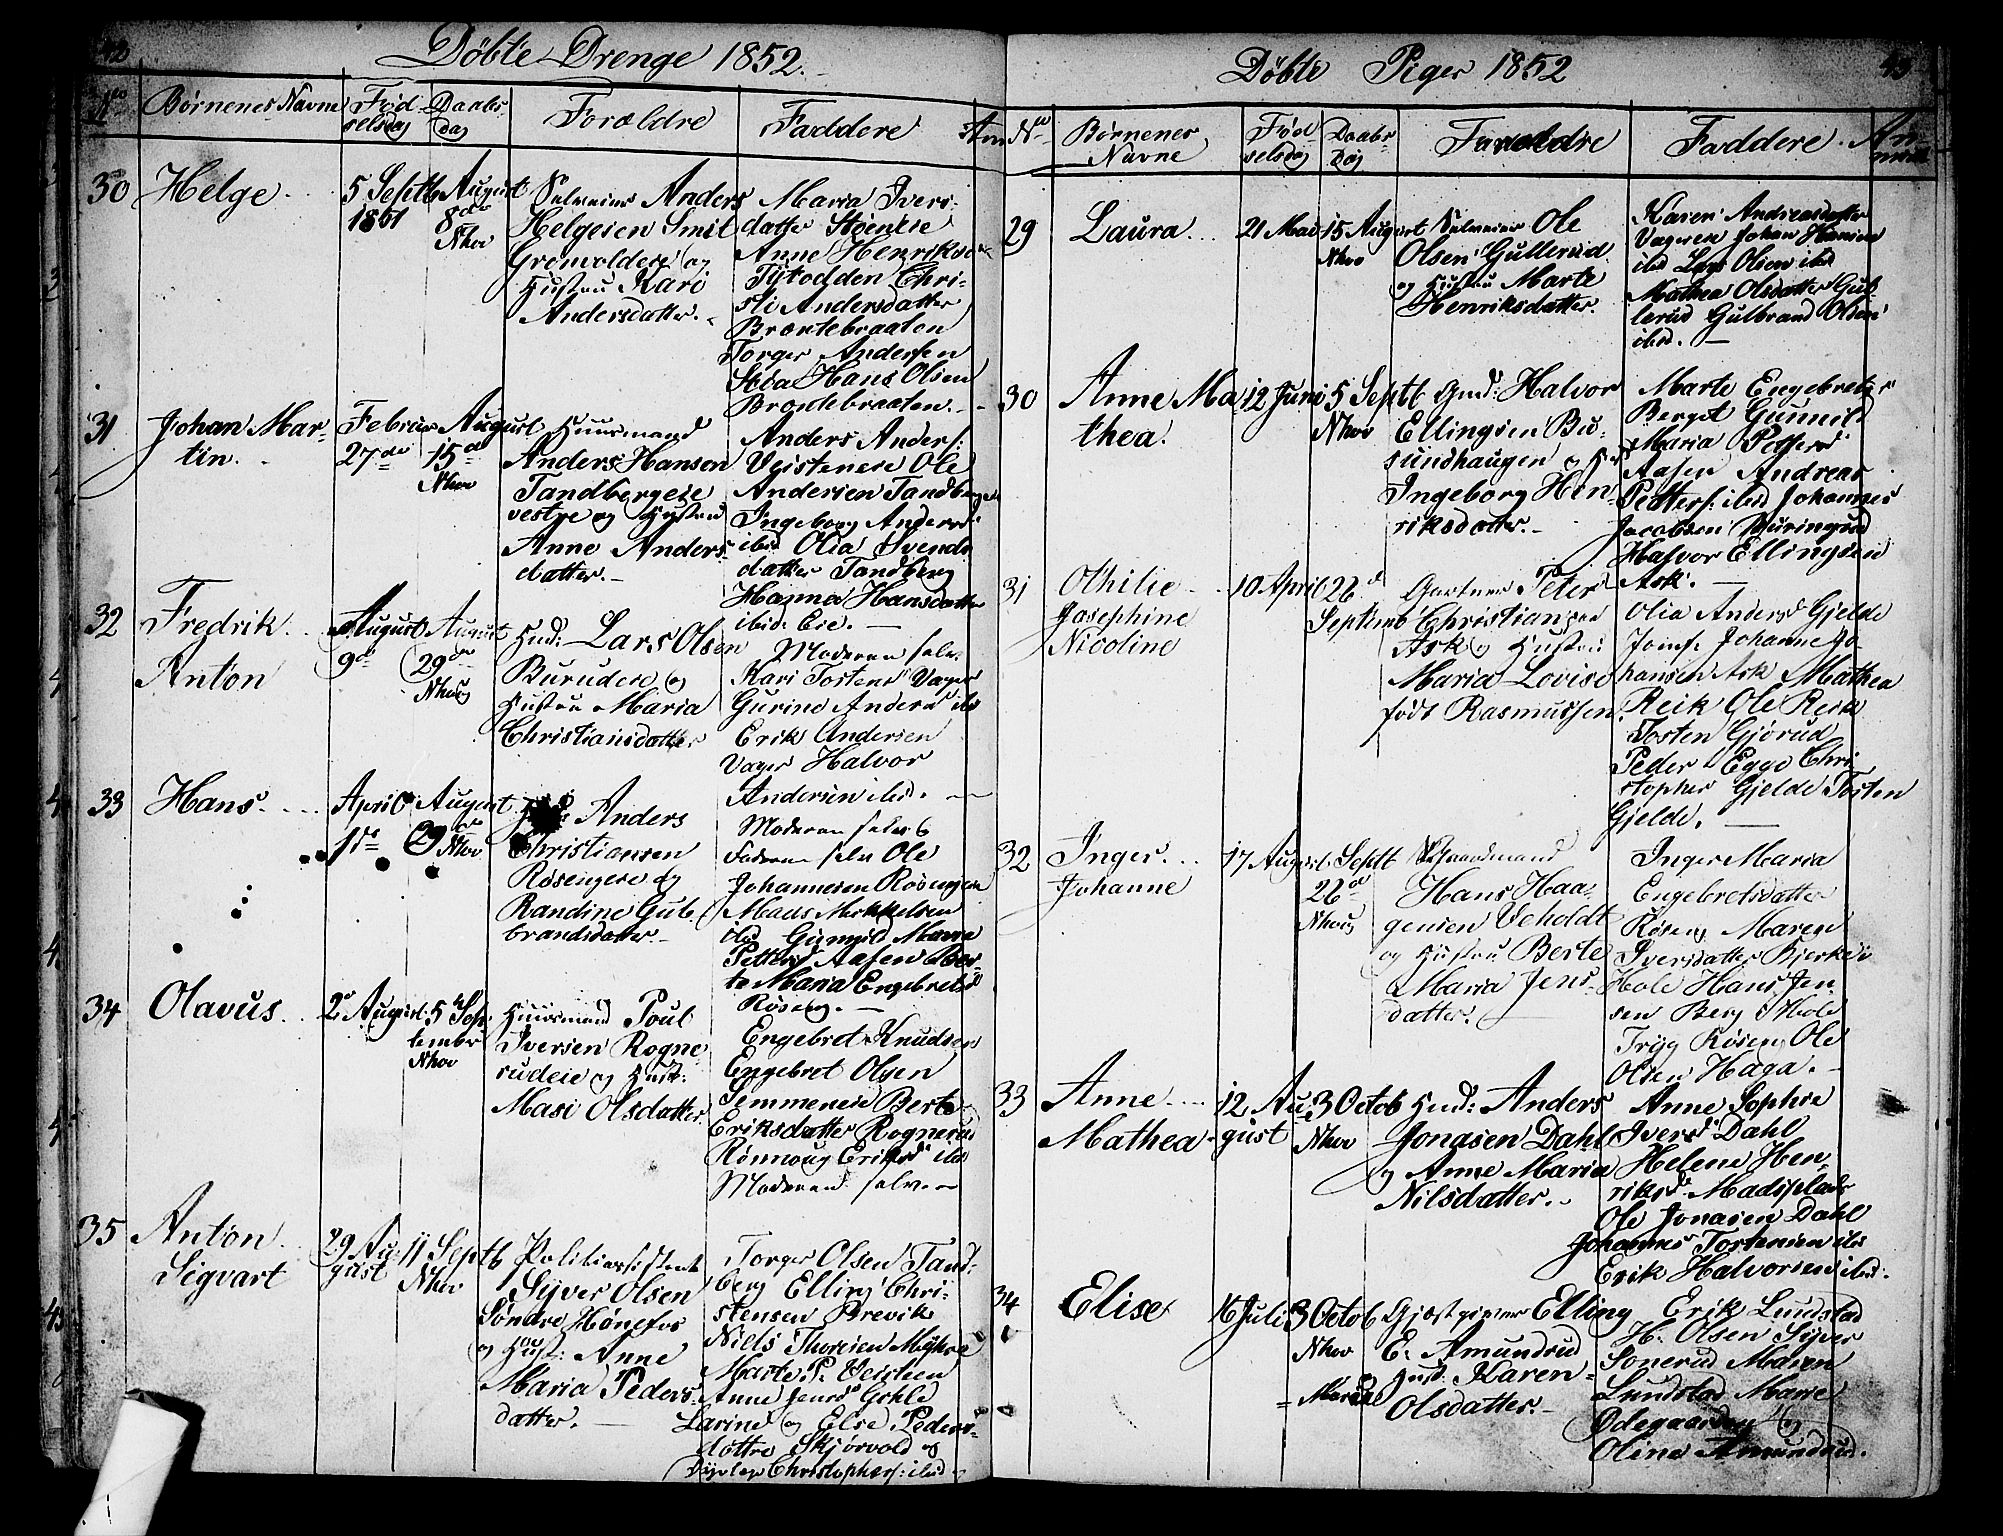 42
Döbte Drenge 1852.
No
Börnenes Navne
Föd-
selsdag
Daabs
dag
Forældre
Faddere
Anm
30
Helge
5 Septb
1851
August
8de
Nkov
Anders
Helgesen Smit
og
Hustru Kari
Andersdatter.
Maria Ivers-
datter
Anne Henriks
Tytodden Chri-
sti Andersdatter
Bræntebraaten
Torger Andersen
Hans Olsen
Bræntebraaten.
31
Johan Mar-
tin.
Februar
27de
August
15de
Nkov
Huusmand
Anders Hansen
Tandbergeie
vestre og Hustru
Anne Anders
datter.
Anders Anders:
Veisteneie Ole
Andersen Tandberg
Ingeborg Anders
ibid Olia Svends
datter Tandberg
Hanna Hansdatter
ibid: Eie.
32
Fredrik
Anton
August
9de
August
29de
Nkov
Huud: Lars Olsen
Burudeie og
Hustru Maria
Christiansdatter
Moderen selv.
Kari Tostens Vager
Gurine Anders ibd
Erik Andersen
Vager Halvor
Andersen ibid.
33
Hans
April
1ste
August
29de
Nkov
Anders
Christiansen
Rösengeie og
Randine Gul-
brandsdatter.
Moderen selv
Faderen selv Ole
Johannesen Rösengeie
Maus Mikkelsen
ibd Gunnild Marie
Petters Aasen Mar-
te Maria Engebrets
Röseng.
34
Olavus
2 August
5 Sep-
tember
Nkov
Huusmand Poul
Iversen Rogne
rudeie og Hust:
Masi Olsdatter
Engebret Knudsen
Engebret Olsen
Temmeneie Berte
Eriksdatter Rognerud
Rönnoug Eriks ibd
Moderen selv.
35
Anton
Sigvart
29 Au-
gust
11 Septb
Nkov
Politiassistent
Syver Olsen
Söndre Hönefos
og Hust: Anne
Maria Peders-
datter.
Torger Olsen Tand-
berg Elling Chri-
stensen Brevik
Niels Thoresen Myhre
Marte P. Veisteen
Anne Jensd
Larine og Else Peders-
döttre Skjörvold og
Christophers: ibid
43
Döbte Piger 1852
No
Börnenes
Navne
Föd
selsdag
Daabs
Dag
Forældre
Faddere
An-
mærk
29
Laura
21 Mai
15 August
Nkov
Ole
Olsen Gullerud
og Hustru Marte
Henriksdatter.
Karen Andreasdatter
Vageren Johan Hansen
ibd Lars Olsen ibd
Mathea Olsdatter Gul-
lerud Gulbrand Olsen
ibd.
30
Anne Ma
thea.
12 Juni
5 Septb
Nkov
Huud: Halvor
Ellingsen Bu-
sundhaugen og Hust
Ingeborg Hen-
riksdatter.
Marte Engebrets
Berget Gunnild
Maria Petters
Aasen Andreas
Petters: ibid Johannes
Jacobsen Buringrud
Halvor Ellingsen
Ask.
31
Othilie
Josephine
Nicoline
10 April
26
Septemb
Gartner Peter
Christiansen
Ask og Hustru
Maria Lovise
födt Rasmussen
Olia Anders Gjelde
Jomf. Johanne Jo-
hansen Ask Mathea
Reik Ole Reik
Tosten Gjörud
Peder Egge Chri-
stopher Gjelde Tosten
Gjelde.
32
Inger
Johanne
17 August
Septb
26de
Nkov
Gaardmand
Hans Haa-
gensen Veholdt
og Hustru Berte
Maria Jens-
datter.
Inger Maria
Engebretsdatter
Röseng Maren
Iversdatter Bjerke i
Hole Hans Jen-
sen Berg i Hole
Tryg Röseng Ole
Olsen Haga.
33
Anne
Mathea
12 Au-
gust
3 Octob
Nkov
Huud: Anders
Jonasen Dahl
og Anne Maria
Nilsdatter.
Anne Sophie
Ivers Dahl
Helene Hen-
riksd Madsplads
Ole Jonasen Dahl
Johannes Tostensen ibd
Erik Halvorsen ibid:
34
Elise
16 Juli
3 Octob
Nkov
Gjæstgiver Elling
E. Amundrud
Hust. Karen
Olsdatter.
Erik Lundstad
H. Olsen Syver
Sonerud Maren
Lundstad Marie
Ödegaarden og
Oline Amundrud.